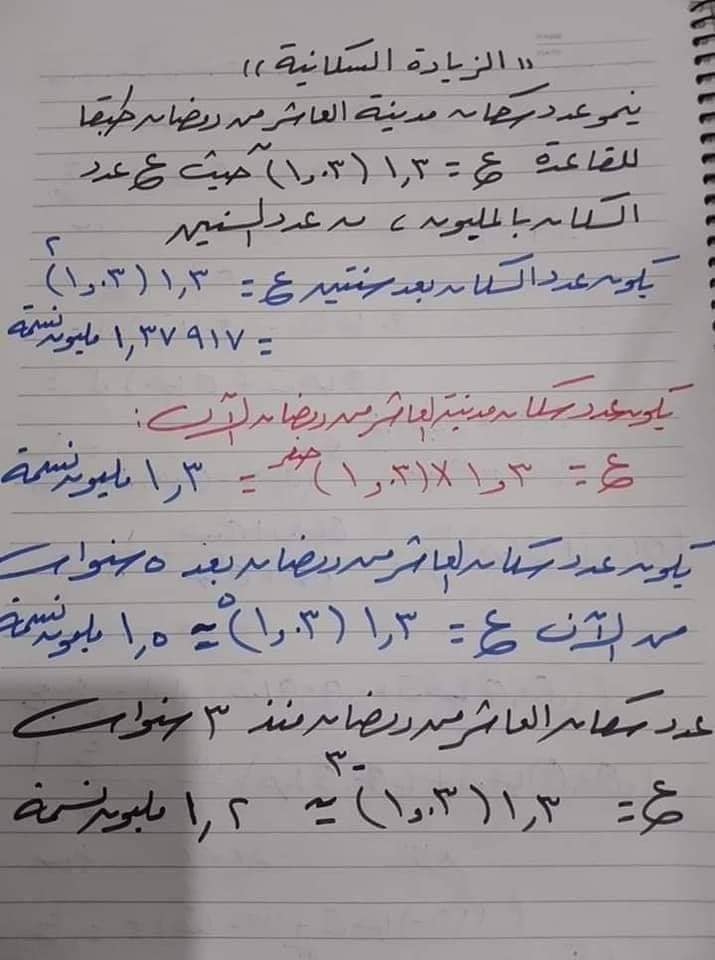 "الزيادة السكانية"
ينمو عدد سكان مدينة العاشر من رمضان طبقا
للقاعدة ع = ١,٣ (١,٠٣)^ن حيث ع عدد
السكان بالمليون ، ن عدد السنين
يكون عدد السكان بعد سنتين ع = ١,٣ (١,٠٣)^٢
= ١,٣٧٩١٧ مليون نسمة
يكون عدد سكان مدينة العاشر من رمضان الآن :
ع = ١,٣ × (١,٠٣)^صفر = ١,٣ مليون نسمة
يكون عدد سكان العاشر من رمضان بعد ٥ سنوات
من الآن ع = ١,٣ (١,٠٣)^٥ ≃ ١,٥ مليون نسمة
عدد سكان العاشر من رمضان منذ ٣ سنوات
ع = ١,٣ (١,٠٣)^-٣ ≃ ١,٢ مليون نسمة